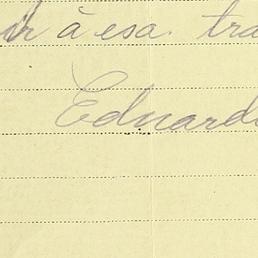 ir à esa tra
Eduardo